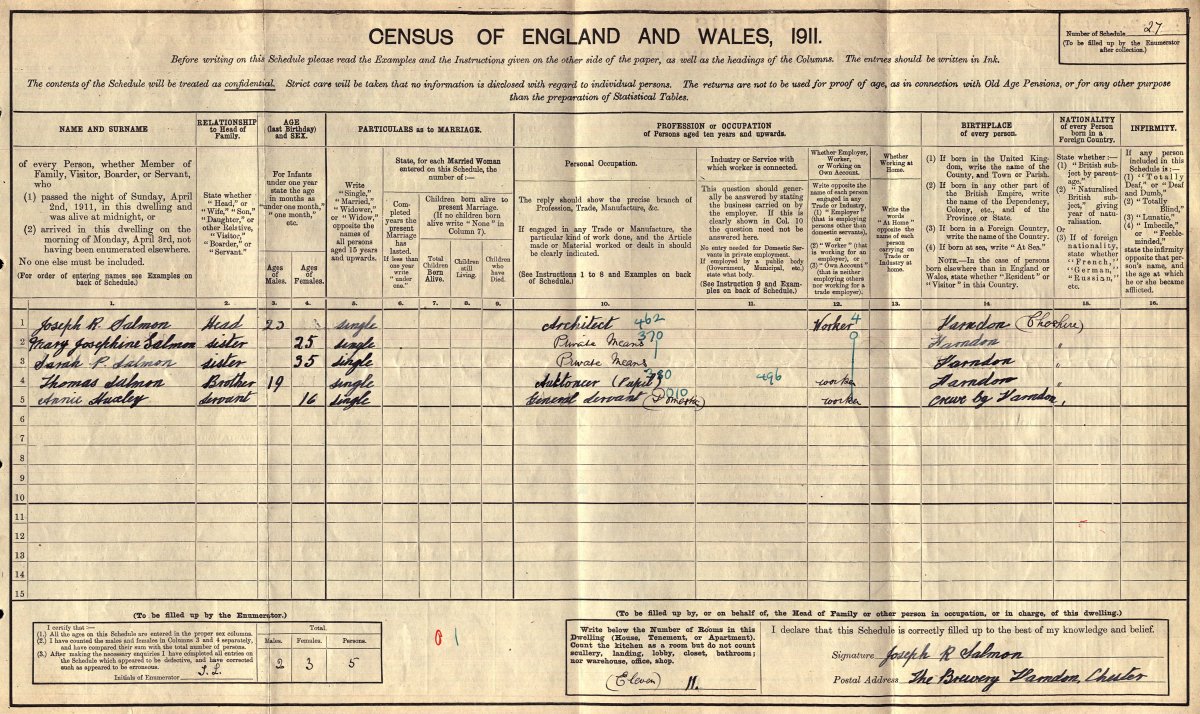 CENSUS OF ENGLAND AND WALES, 1911.
Number of Schedule 27
(To be filled up by the Enumerator
after collection.)
Before writing on this Schedule please read the Examples and the Instructions given on the other side of the paper, as well as the headings of the Columns. The entries should be written in Ink.
The contents of the Schedule will be treated as confidential. Strict care will be taken that no information is disclosed with regard to individual persons. The returns are not to be used for proof of age, as in connection with Old Age Pensions, or for any other purpose
than the preparation of Statistical Tables.
NAME AND SURNAME
of every Person, whether Member of
Family, Visitor, Boarder, or Servant,
who
(1) passed the night of Sunday, April
2nd, 1911, in this dwelling and
was alive at midnight, or
(2) arrived in this dwelling on the
morning of Monday, April 3rd, not
having been enumerated elsewhere.
No one else must be included.
(For order of entering names see Examples on
back of Schedule.)
1.
RELATIONSHIP
to Head of
Family.
State whether
"Head," or
"Wife," "Son,"
"Daughter," or
other Relative,
"Visitor,"
"Boarder," or
"Servant."
2.
AGE
(last Birthday)
and SEX.
For Infants
under one year
state the age
in months as
"under one month,"
"one month,"
etc.
Ages
of
Males.
3.
Ages
of
Females.
4.
PARTICULARS as to MARRIAGE.
Write
"Single,"
"Married,"
"Widower,"
or "Widow,"
opposite the
names of
all persons
aged 15 years
and upwards.
5.
State, for each Married Woman
entered on this Schedule, the
number of:—
Completed
years the
present
Marriage
has
lasted.
If less than
one year
write
"under
one."
6.
Children born alive to
present Marriage.
(If no children born
alive write "None" in
Column 7).
Total
Children
Born
Alive.
7.
Children
still
Living.
8.
Children
who
have
Died.
9.
PROFESSION or OCCUPATION
of Persons aged ten years and upwards.
Personal Occupation.
The reply should show the precise branch of
Profession, Trade, Manufacture, &c.
If engaged in any Trade or Manufacture, the
particular kind of work done, and the Article
made or Material worked or dealt in should
be clearly indicated.
(See Instructions 1 to 8 and Examples on back
of Schedule.)
10.
Industry or Service with
which worker is connected.
This question should generally
be answered by stating
the business carried on by
the employer. If this is
clearly shown in Col. 10
the question need not be
answered here.
No entry needed for Domestic Servants
in private employment.
If employed by a public body
(Government, Municipal, etc.)
state what body.
(See Instruction 9 and Examples
on back of Schedule.)
11.
Whether Employer,
Worker,
or Working on
Own Account.
Write opposite the
name of each person
engaged in any
Trade or Industry,
(1) "Employer"
(that is employing
persons other than
domestic servants),
or
(2) "Worker" (that
is working for an
employer), or
(3) "Own Account"
(that is neither
employing others
nor working for a
trade employer).
12.
Whether
Working at
Home.
Write the
words
"At Home"
opposite the
name of each
person
carrying on
Trade or
Industry at
home.
13.
BIRTHPLACE
of every person.
(1) If born in the United Kingdom,
write the name of the
County, and Town or Parish.
(2) If born in any other part of
the British Empire, write
the name of the Dependency,
Colony, etc., and of the
Province or State.
(3) If born in a Foreign Country,
write the name of the Country.
(4) If born at sea, write "At Sea."
NOTE.—In the case of persons
born elsewhere than in England or
Wales, state whether "Resident" or
"Visitor" in this Country.
14.
NATIONALITY
of every Person
born in a
Foreign Country.
State whether:—
(1) "British subject
by parentage."
(2) "Naturalised
British
subject,"
giving
year of naturalisation.
Or
(3) If of foreign
nationality,
state whether
"French,"
"German,"
"Russian,"
etc.
15.
INFIRMITY.
If any person
included in this
Schedule is:—
(1) "Totally
Deaf," or "Deaf
and Dumb,"
(2) "Totally
Blind,"
(3) "Lunatic,"
(4) "Imbecile,"
or "Feeble-minded,"
state the infirmity
opposite that person's
name, and
the age at which
he or she became
afflicted.
16.
1 Joseph R. Salmon Head 23 single Architect 462 Worker 4 Farndon (Cheshire)
2 Mary Josephine Salmon sister 25 single Private Means 370 0 Farndon "
3 Sarah P. Salmon sister 35 single Private Means Farndon "
4 Thomas Salmon Brother 19 single (Pupil) 496 worker Farndon "
5 Annie Huxley servant 16 single General servant (Domestic) worker Crewe by Farndon "
6
7
8
9
10
11
12
13
14
15
(To be filled up by the Enumerator.)
I certify that:—
(1.) All the ages on this Schedule are entered in the proper sex columns.
(2.) I have counted the males and females in Columns 3 and 4 separately,
and have compared their sum with the total number of persons.
(3.) After making the necessary enquiries I have completed all entries on
the Schedule which appeared to be defective, and have corrected
such as appeared to be erroneous.
Initials of Enumerator
Total.
Males. Females. Persons.
2 3 5
0 1
(To be filled up by, or on behalf of, the Head of Family or other person in occupation, or in charge, of this dwelling.)
Write below the Number of Rooms in this
Dwelling (House, Tenement, or Apartment).
Count the kitchen as a room but do not count
scullery, landing, lobby, closet, bathroom;
nor warehouse, office, shop.
(Eleven) 11.
I declare that this Schedule is correctly filled up to the best of my knowledge and belief.
Signature Joseph R Salmon
Postal Address The Brewery Farndon, Chester